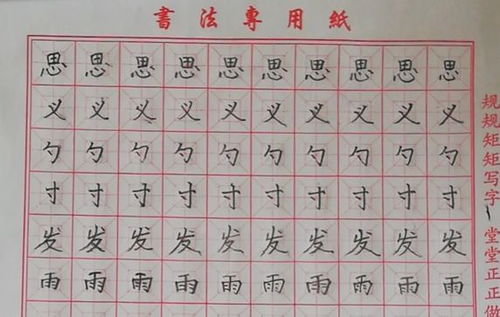 書法專用紙
思思思思思思思思思思
义义义义义义义义义义
勺勺勺勺勺勺勺勺勺勺
寸寸寸寸寸寸寸寸寸寸
发发发发发发发发发发
雨雨雨雨雨雨雨雨雨雨
规规矩矩写字、堂堂正正做